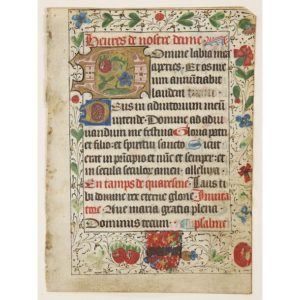 Heures de nostre dame
Domine labia mea
aperies. Et os me
um annūtiabit
laudem
Deus in adiutorium meū
intende. Domine ad adiu
uandum me festina Gloria patri
et filio. et spiritui sancto
erat in prīcipio et nūc et semper. et
in secula seculor amen. alleluya.
En tamps de quaresme. Laus ti
bi domine rex eterne glorie Inuita
tore. Aue maria gratia plena
Dominus tecum. psalme